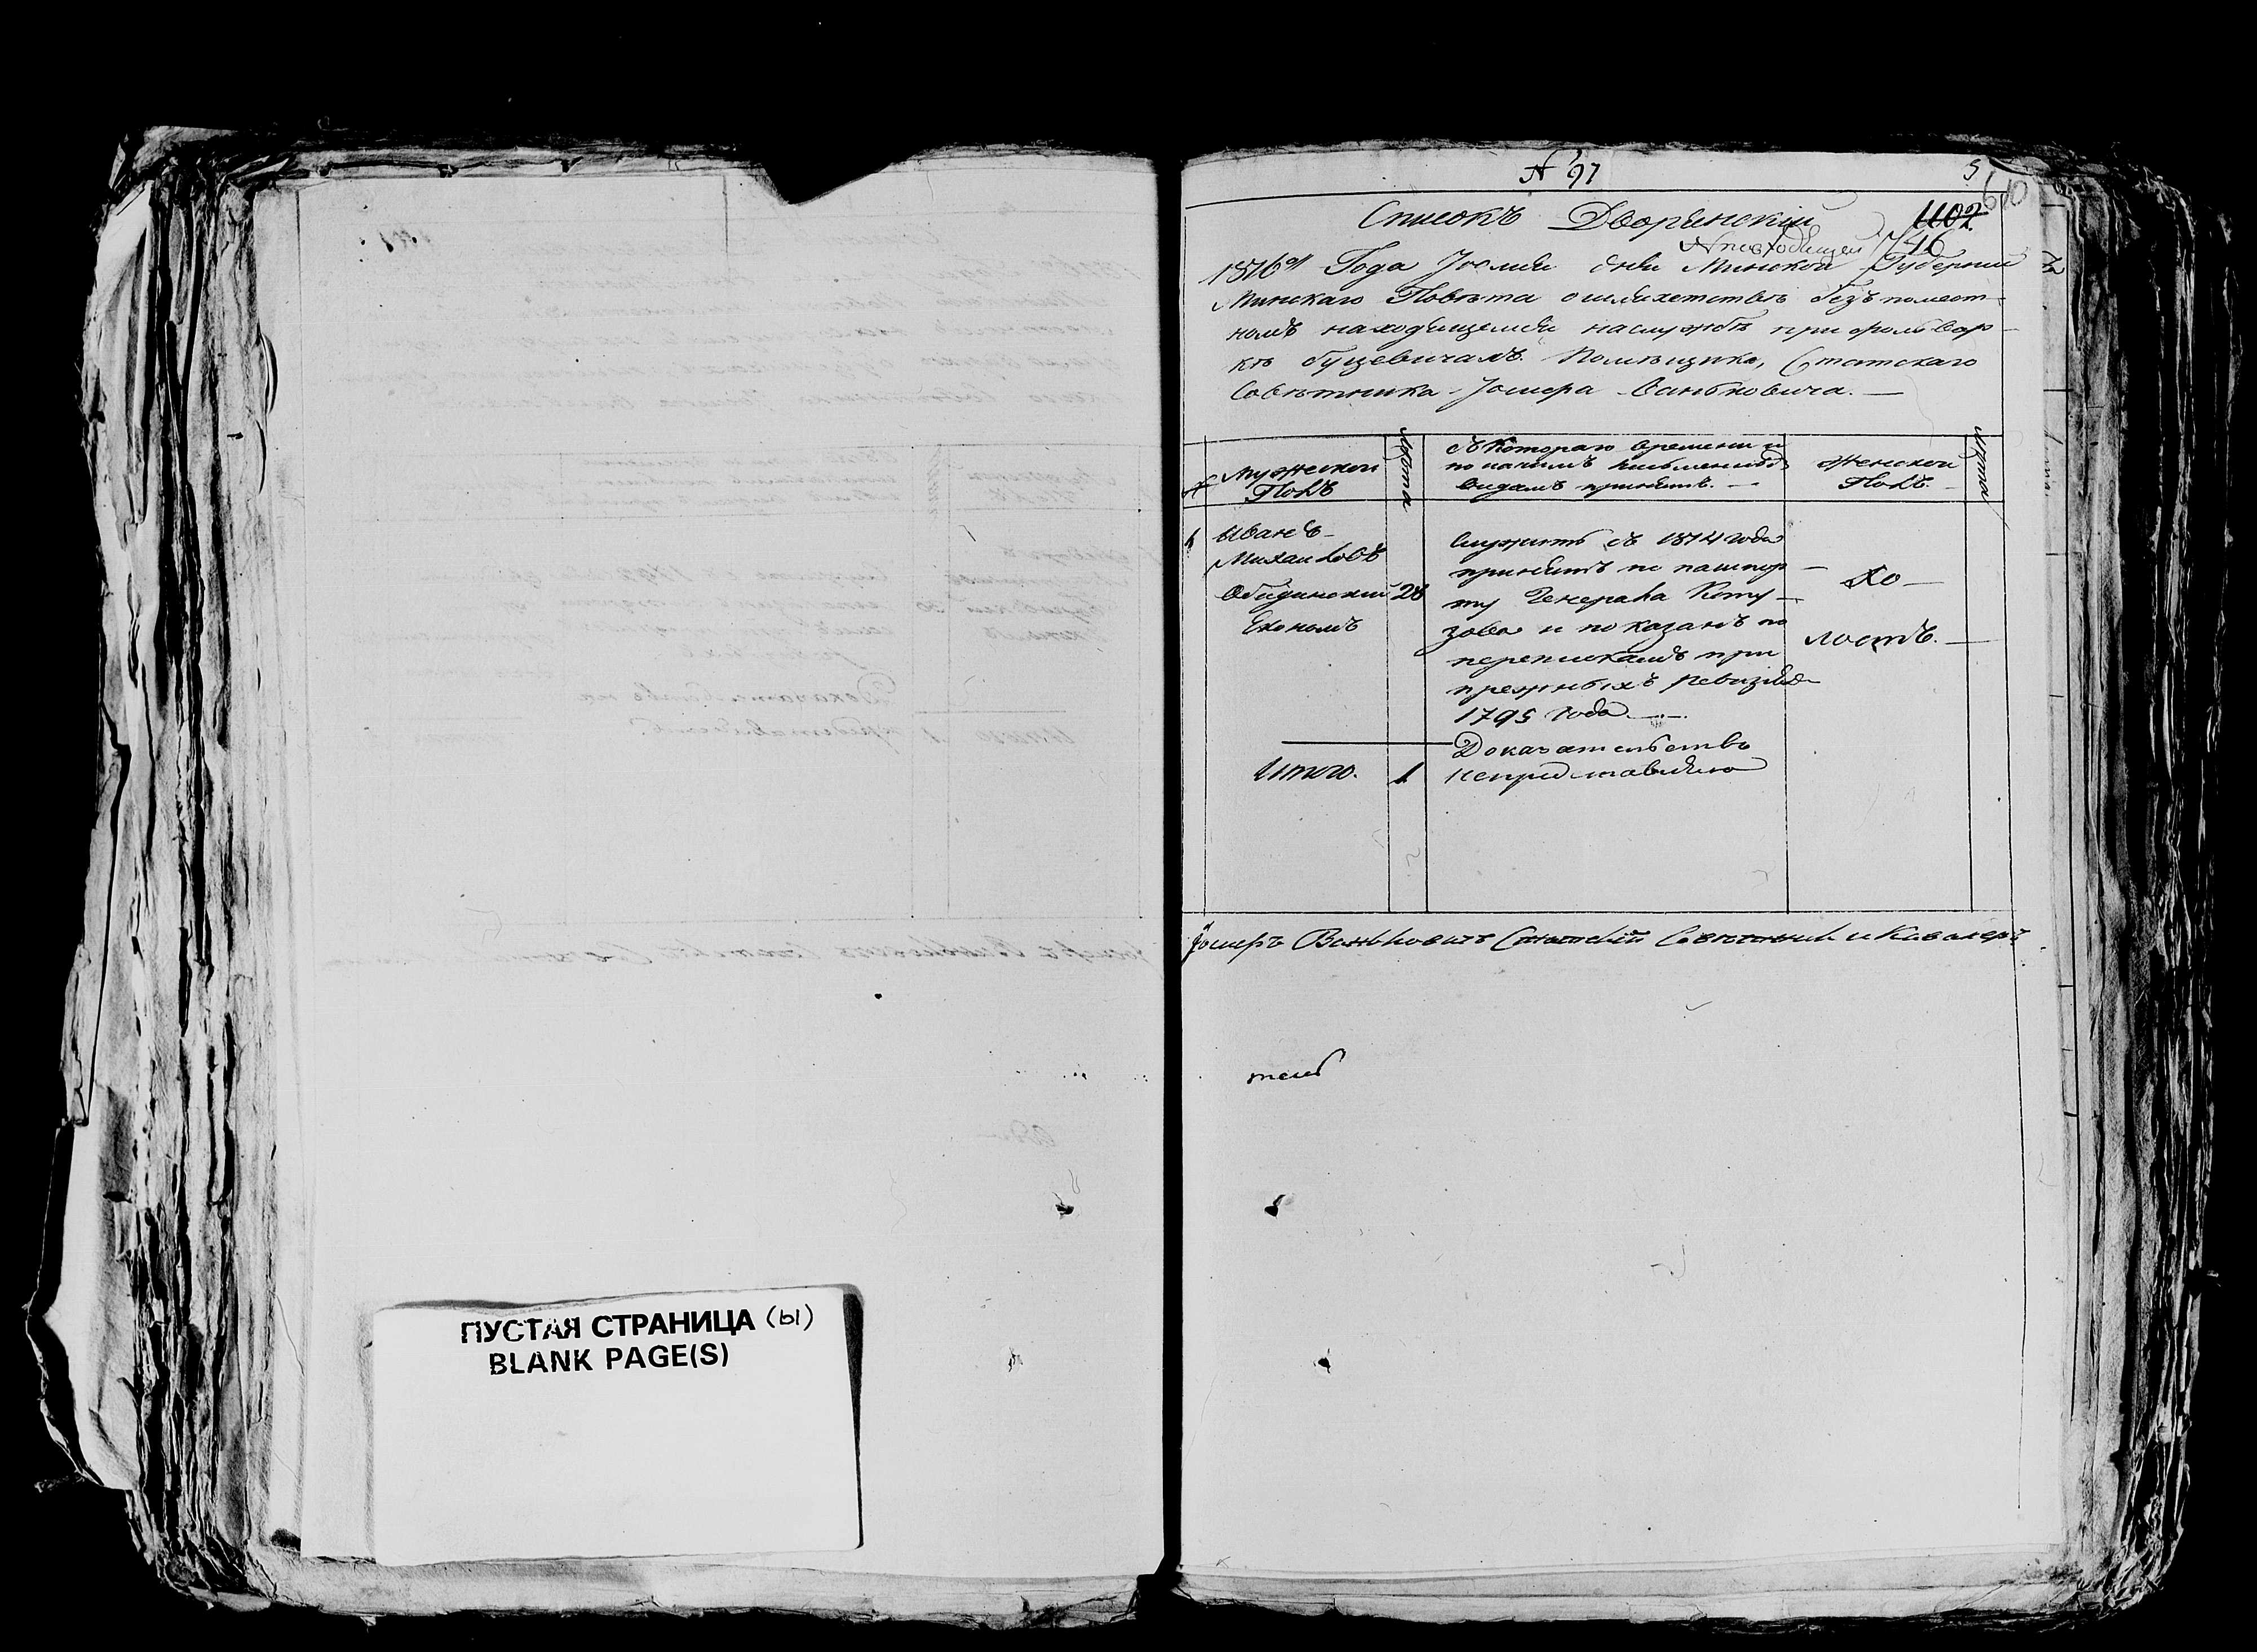 № 97
5
610
Списокъ Дворянскій 1102
№повходящей 746
1816го Года Іюлия дня Минской Губерніи
Минскаго Повѣта о шляхетствѣ безъ помест-
номъ находящемся наслужбѣ при фольвар-
кѣ буцевичахъ Помѣщика, Статскаго
Совѣтника Іосифа Ваньковича.
№
Мужескои Полъ
Лѣта
съ Котораго времени и
по какимъ письменнымъ
видамъ принятъ.
Женскои Полъ.
Лѣта
1
Иванъ
Михаиловъ
Экономъ
28
Служитъ съ 1814 года
принятъ по пашпор-
ту Генерала Куту-
зова и показанъ по
перепискамъ при
прежнихъ Ревизіяхъ
1795 года
Хо-
лостъ.
Итого. 1
Доказательствъ
непредставляю
Іосифъ Ваньковичъ Статскій Советникъ и Кавалеръ
ПУСТАЯ СТРАНИЦА (Ы)
BLANK PAGE(S)